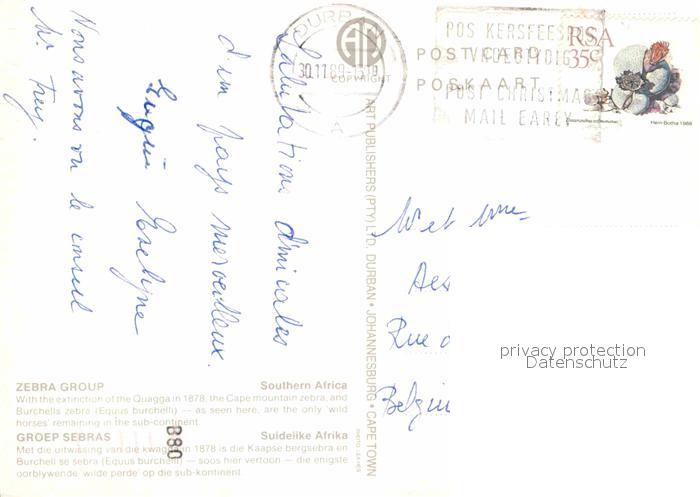 Salutations Amicales
d'un pays merveilleux.
Eugin Evelyne
Nous avons vu le consul
Mr. Frey.
30.11.89-15
COPYRIGHT
POS KERSFEES
VROEGTYDIG
POST CHRISTMAS
MAIL EARLY
POST CARD
POSKAART
RSA
35c
Hein Botha 1988
ART PUBLISHERS (PTY) LTD. DURBAN • JOHANNESBURG • CAPE TOWN
Rue
Belgi
privacy protection
Datenschutz
ZEBRA GROUP Southern Africa
With the extinction of the Quagga in 1878, the Cape mountain zebra, and
Burchells zebra (Equus burchelli) — as seen here, are the only 'wild
horses' remaining in the sub-continent.
GROEP SEBRAS Suidelike Afrika
Met die uitwissing van die kwagga in 1878 is die Kaapse bergsebra en
Burchell se sebra (Equus burchelli) — soos hier vertoon — die enigste
oorblywende 'wilde perde' op die sub-kontinent.
B80